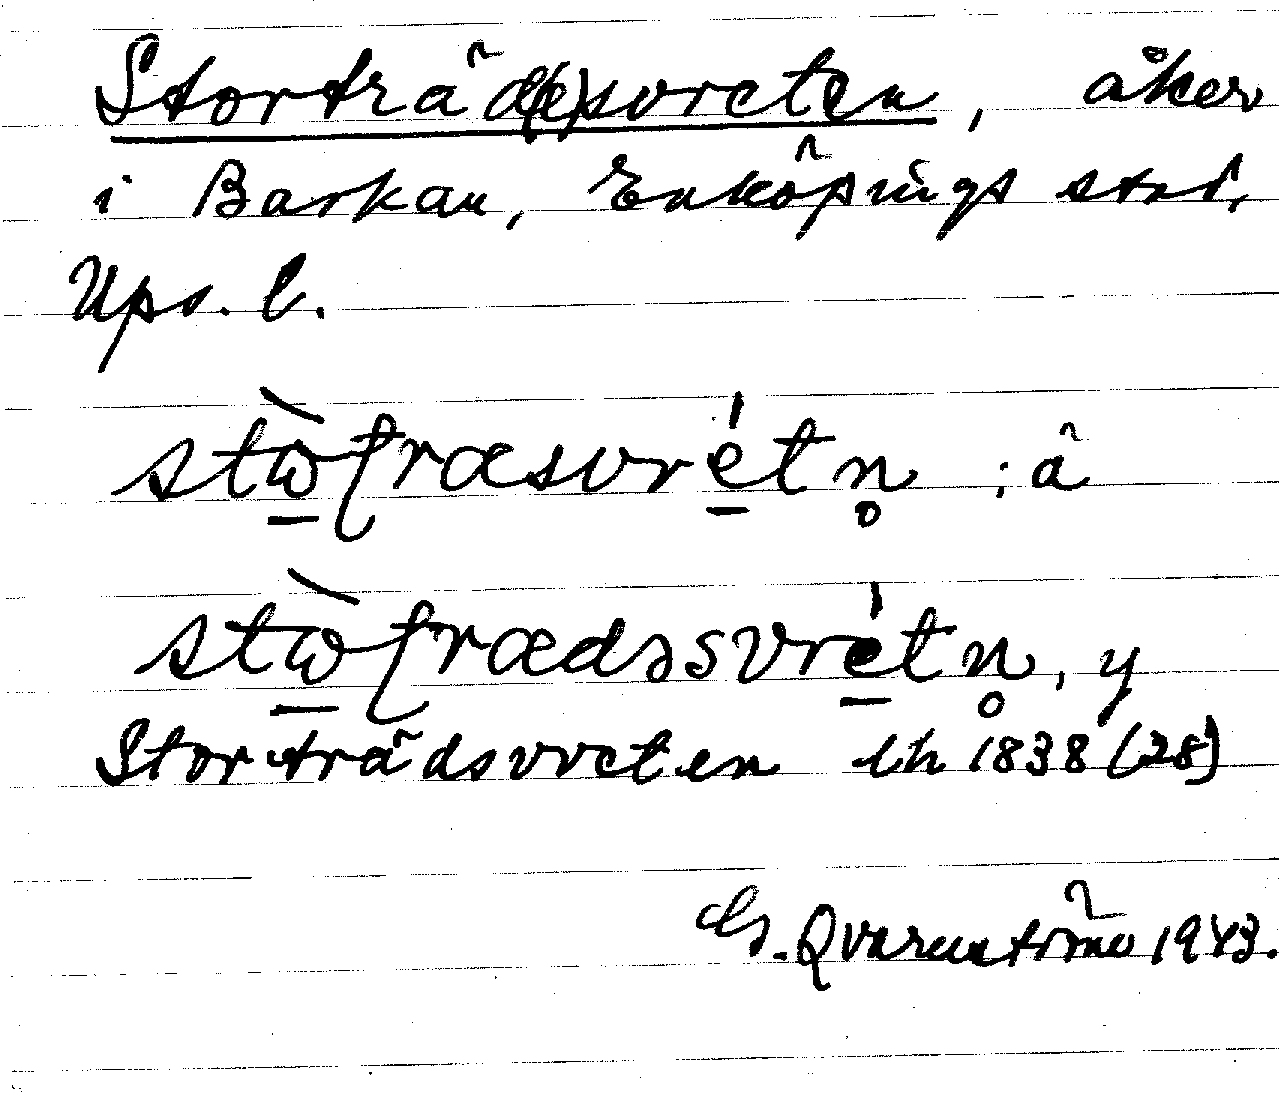 Storträd(e)svreten, åker
i Barkan, Enköpings std,
Ups. l.
stὼ̲ʈræsvré̲tn̥ ; å
stὼ̲ʈrædəsvré̲tn̥, y
Storträdsvreten lh 1838 (28)
G. Qvarnström 1943.